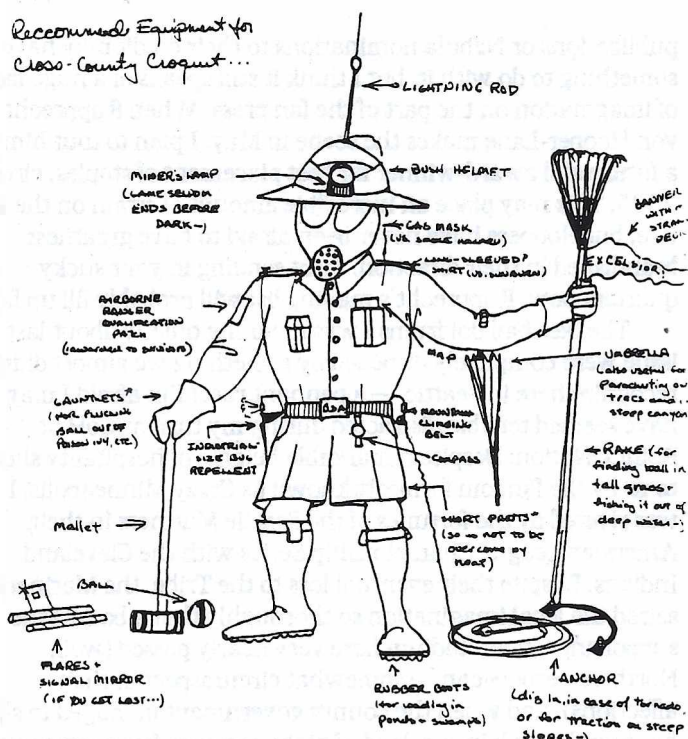 Reccommend Equipment for
Cross-County Croquet...
LIGHTNING ROD
MINER'S LAMP
(GAME SELDOM
ENDS BEFORE
DARK-)
BUSH HELMET
GAS MASK
(VS. SMOKE HAZARD)
LONG SLEEVED
SHIRT (VS. SUNBURN)
BANNER
WITH A
EXCELSIOR
AIRBORNE
RANGER
QUALIFICATION
PATCH
MAP
UMBRELLA
(also useful for
parachuting
steep canyon
GAUNTLETS
(FOR PLUCKING
BALL OUT OF
POISON IVY, ETC.)
INDUSTRIAL
SIZE BUG
REPELLENT
MOUNTAIN
CLIMBING
BELT
RAKE (for
finding ball in
tall grass +
fishing it out of
deep water)
Mallet
SHORT PANTS
(SO AS NOT TO BE
OVERCOME BY
HEAT)
FLARES +
SIGNAL MIRROR
(IF YOU GET LOST...)
RUBBER BOOTS
(for wading in
ponds + swamps)
ANCHOR
(dig in, in case of tornado,
or for traction on steep
slopes-)